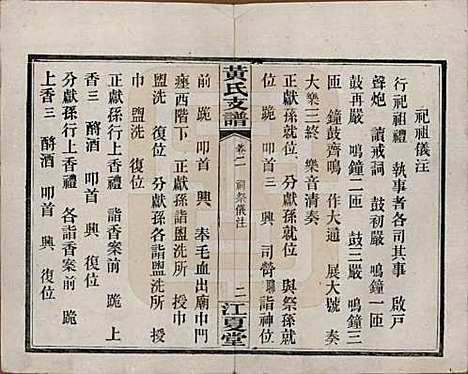 祀祖儀注
行祀祖禮 執事者各司其事 啟戶
聲炮 讀戒詞 鼓初嚴 鳴鐘一匝
鼓再嚴 鳴鐘二匝 鼓三嚴 鳴鐘三
匝 鐘鼓齊鳴 作大通 展大號 奏
大樂三終 樂音清奏
正獻孫就位 分獻孫就位 與祭孫就
位 跪 叩首三 興 司帨詣神位
黃氏支譜
卷二 祠祭儀注 二
江夏堂
前 跪 叩首 興 奉毛血出廟中門
瘞西階下 正獻孫詣盥洗所 授巾
盥洗 復位 分獻孫各詣盥洗所 授
巾 盥洗 復位
正獻孫行上香禮 詣香案前 跪 上
香三 酹酒 叩首 興 復位
分獻孫行上香禮 詣香案前 跪
上香三 酹酒 叩首 興 復位